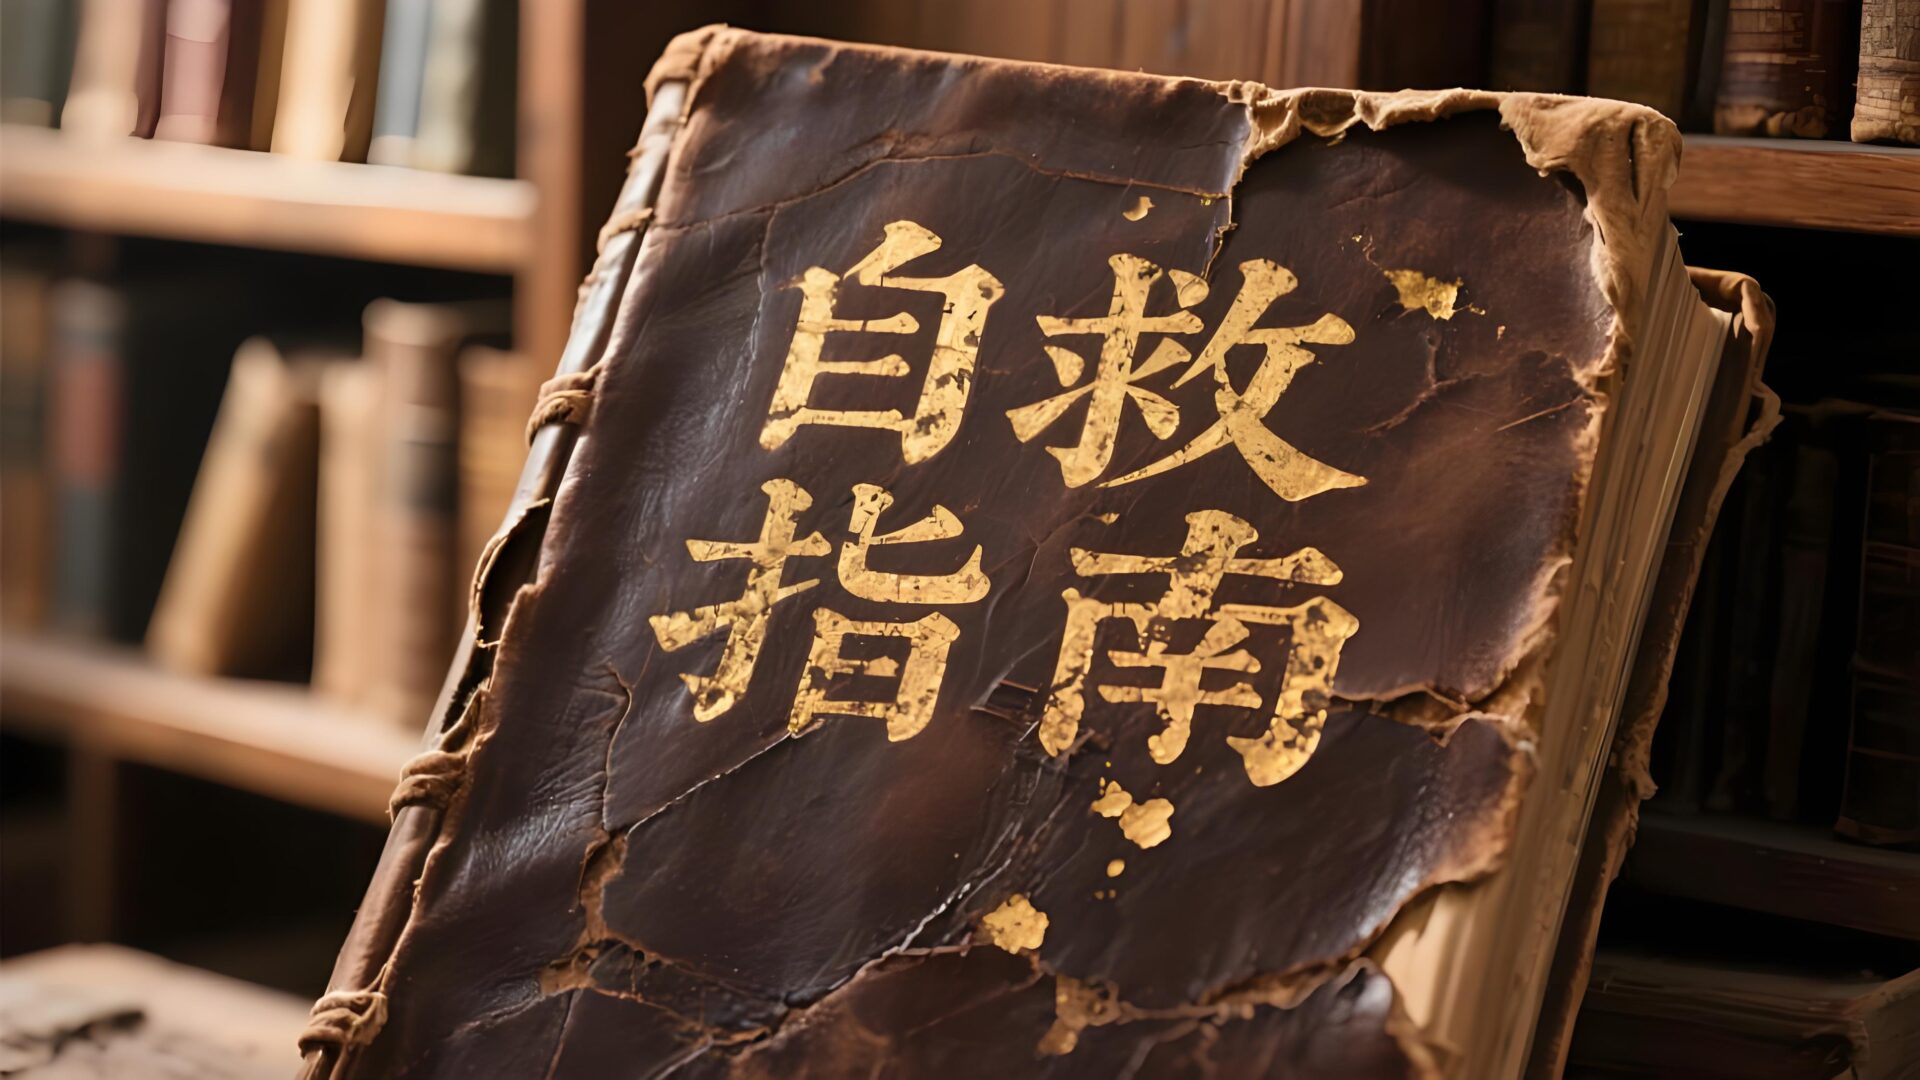 自救
指南